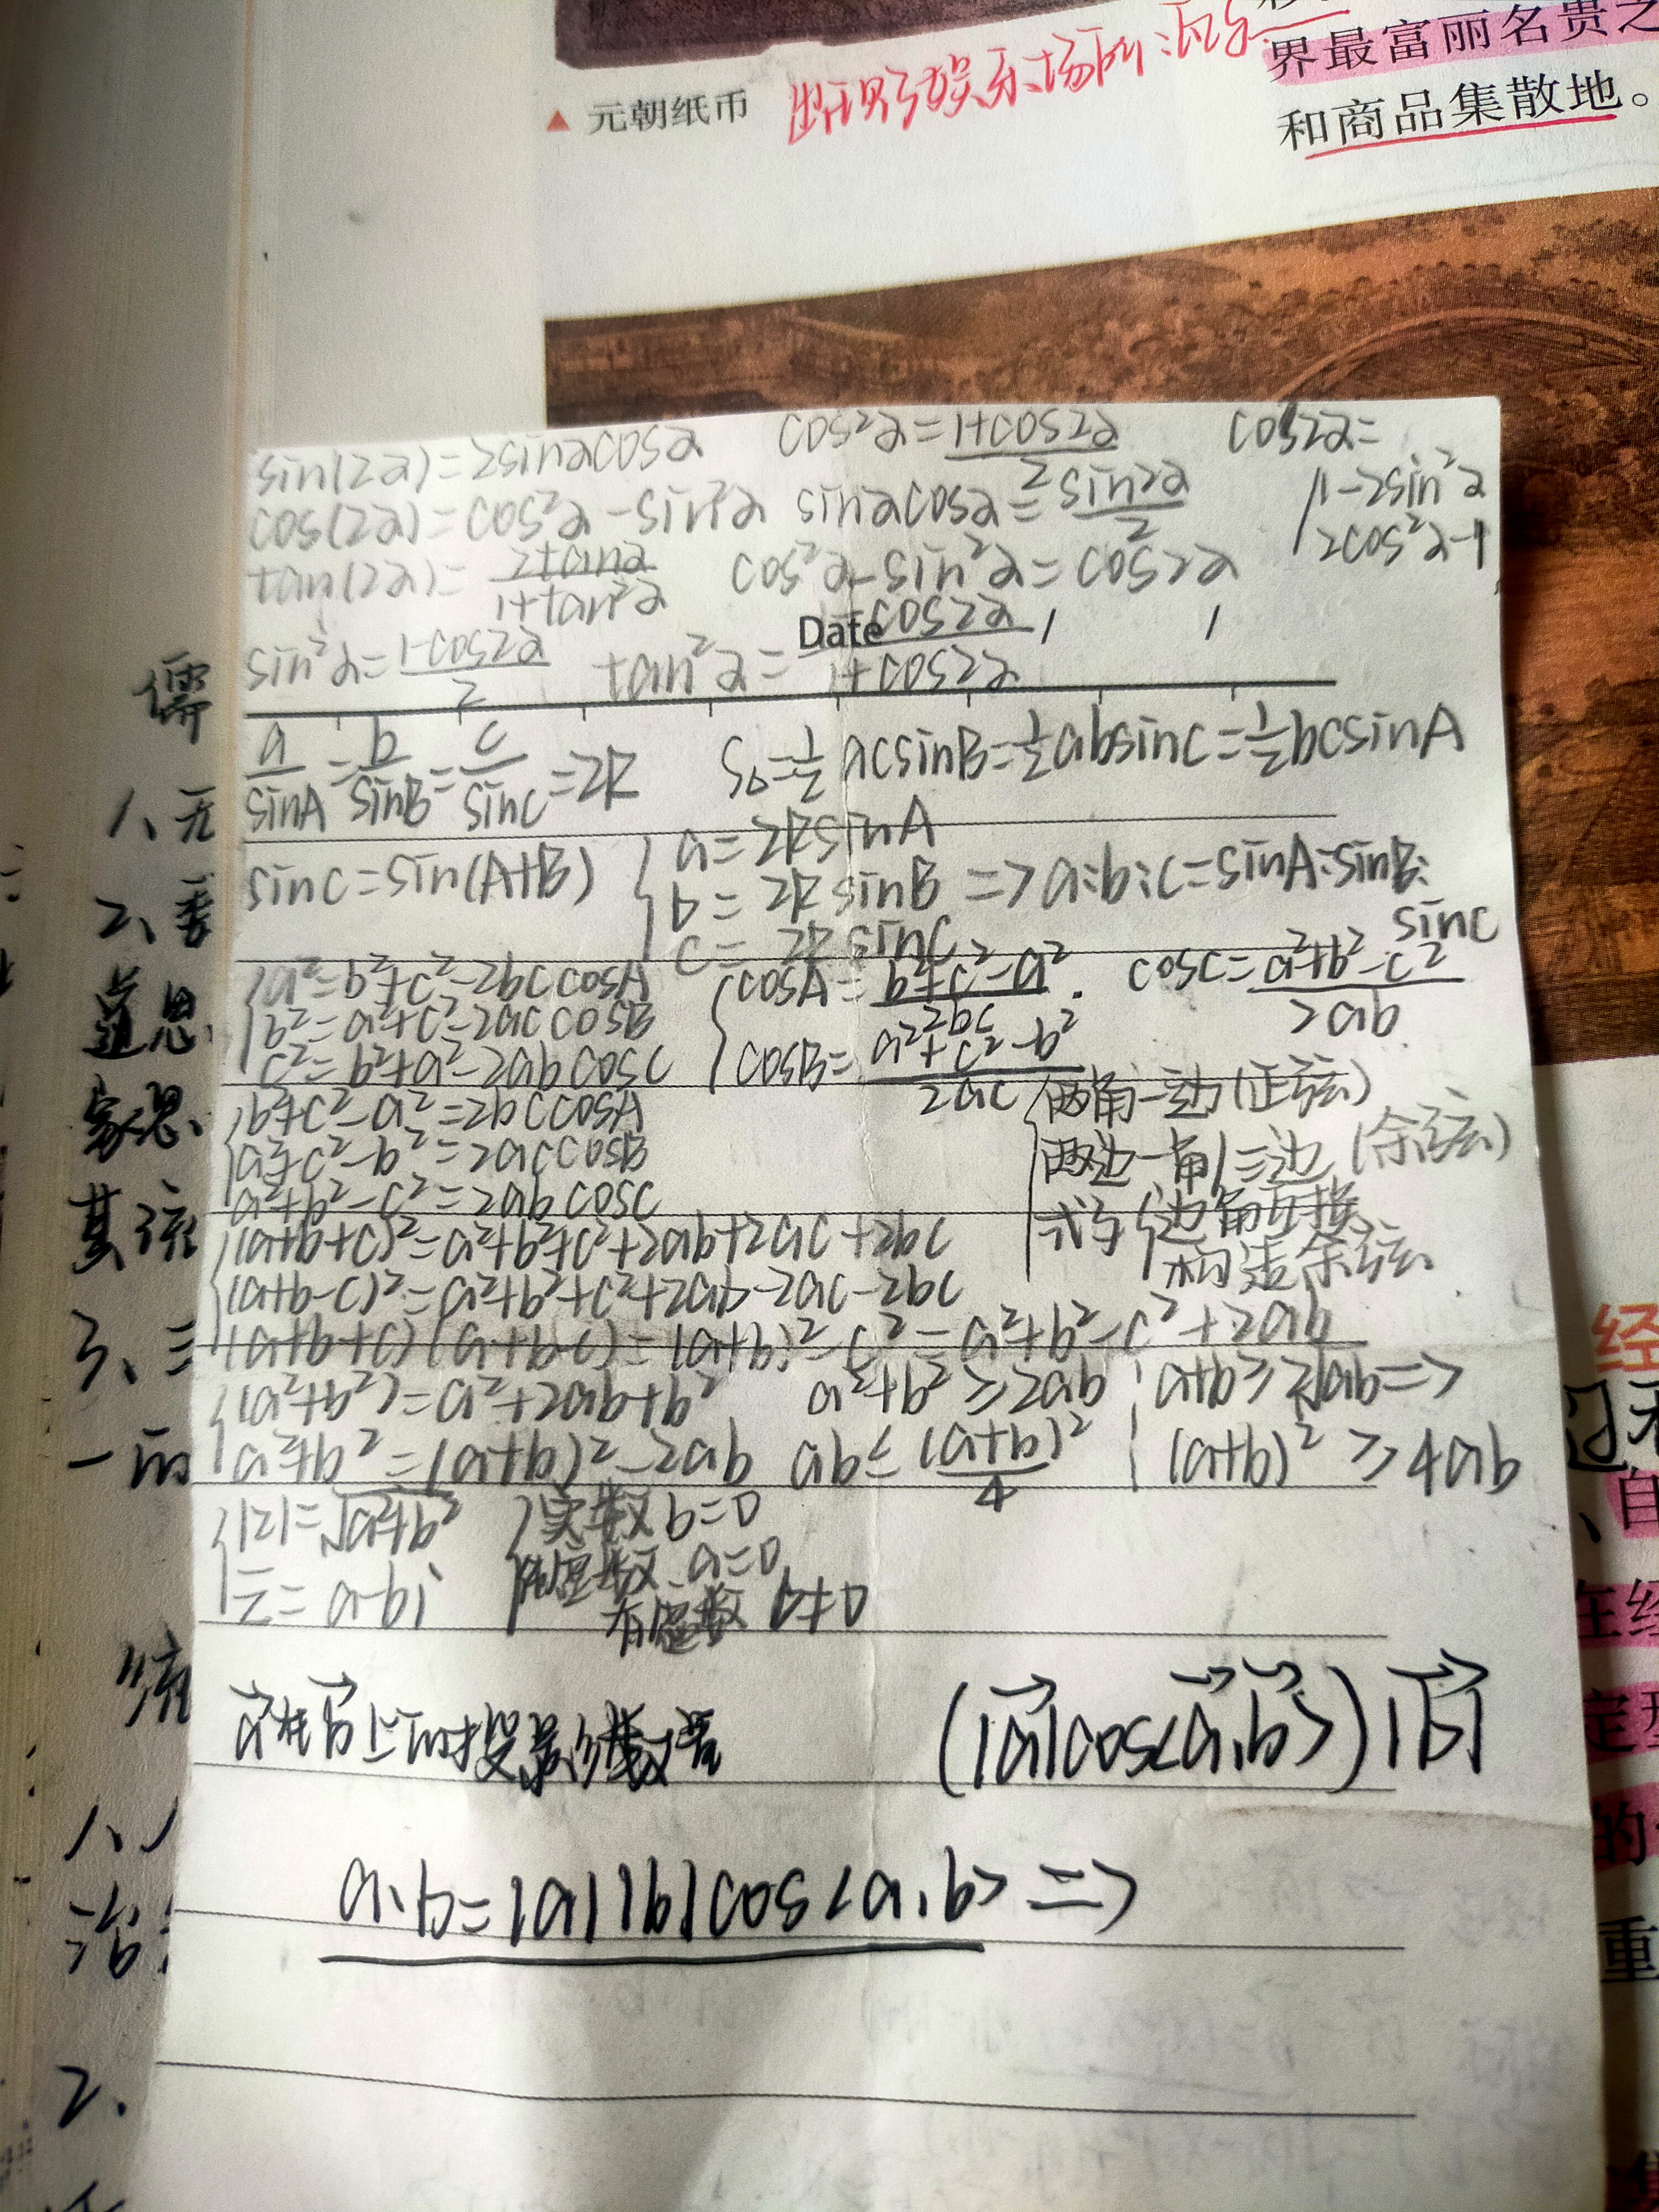 界最富丽名贵之
和商品集散地。
▲ 元朝纸币
出现了娱乐场所:瓦子
sin(2α)=2sinαcosα
cos²α=(1+cos2α)/2
cos2α=
{1-2sin²α
2cos²α-1
cos(2α)=cos²α-sin²α
sinαcosα=sin2α/2
tan(2α)=2tanα/(1+tan²α)
cos²α-sin²α=cos2α
Date
sin²α=(1-cos2α)/2
tan²α=(1-cos2α)/(1+cos2α)
a/sinA=b/sinB=c/sinC=2R
S△=½acsinB=½absinC=½bcsinA
sinC=sin(A+B)
{a=2RsinA
b=2RsinB => a:b:c=sinA:sinB:
sinC
c=2RsinC
{a²=b²+c²-2bccosA
b²=a²+c²-2accosB
c²=b²+a²-2abcosC
{cosA=(b²+c²-a²)/2bc
cosC=(a²+b²-c²)/2ab
cosB=(a²+c²-b²)/2ac
{b²+c²-a²=2bccosA
a²+c²-b²=2accosB
a²+b²-c²=2abcosC
{两角一边(正弦)
两边一角/三边(余弦)
式子{边角互换
构造余弦
{(a+b+c)²=a²+b²+c²+2ab+2ac+2bc
(a+b-c)²=a²+b²+c²+2ab-2ac-2bc
(a+b+c)(a+b-c)=(a+b)²-c²=a²+b²-c²+2ab
{(a²+b²)=a²+2ab+b²
a²+b²≥2ab
a+b≥2√ab=>
a²+b²=(a+b)²-2ab
ab≤(a+b)²/4
(a+b)²≥4ab
{|z|=√a²+b²
z̄=a-bi
{实数 b=0
纯虚数 a=0
有虚数 b≠0
a⃗在b⃗上的投影数量
(|a⃗|cos<a⃗,b⃗>)|b⃗|
a·b=|a||b|cos<a,b> =>
儒
1、无
2、
道思
家思
其流
3、三
一的
治
2.
经
自
在经
定型
的
重